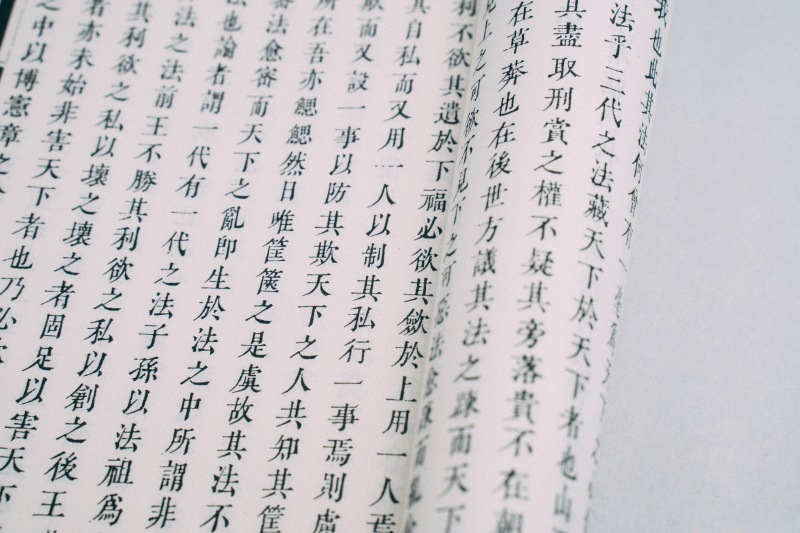 我也此其法何曾有
法乎三代之法藏天下於天下者也山
其盡取刑賞之權不疑其旁落貴不在朝
在草莽也在後世方議其法之疎而天下
上之可欲不見下之可惡法愈疎而亂
利不欲其遺於下福必欲其斂於上用一人焉
其自私而又用一人以制其私行一事焉則慮
欺而又設一事以防其欺天下之人共知其筐
所在吾亦鰓鰓然日唯筐篋之是虞故其法不
密法愈密而天下之亂即生於法之中所謂非
也論者謂一代有一代之法子孫以法祖爲
法之法前王不勝其利欲之私以創之後王
其利欲之私以壞之壞之者固足以害天下
者亦未始非害天下者也乃必欲
之中以博憲章之